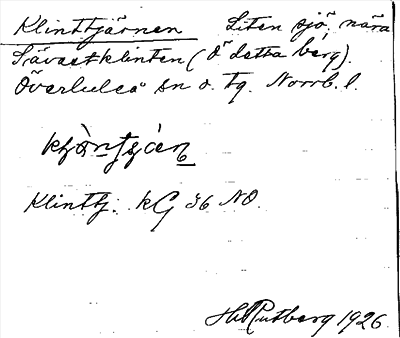 Klinttjärnen Liten sjö, nära
Sävastklinten (Ö detta berg).
Överluleå sn o. tg. Norrb. l.
Klinttj. kG 36 NO.
H. Rutberg 1926